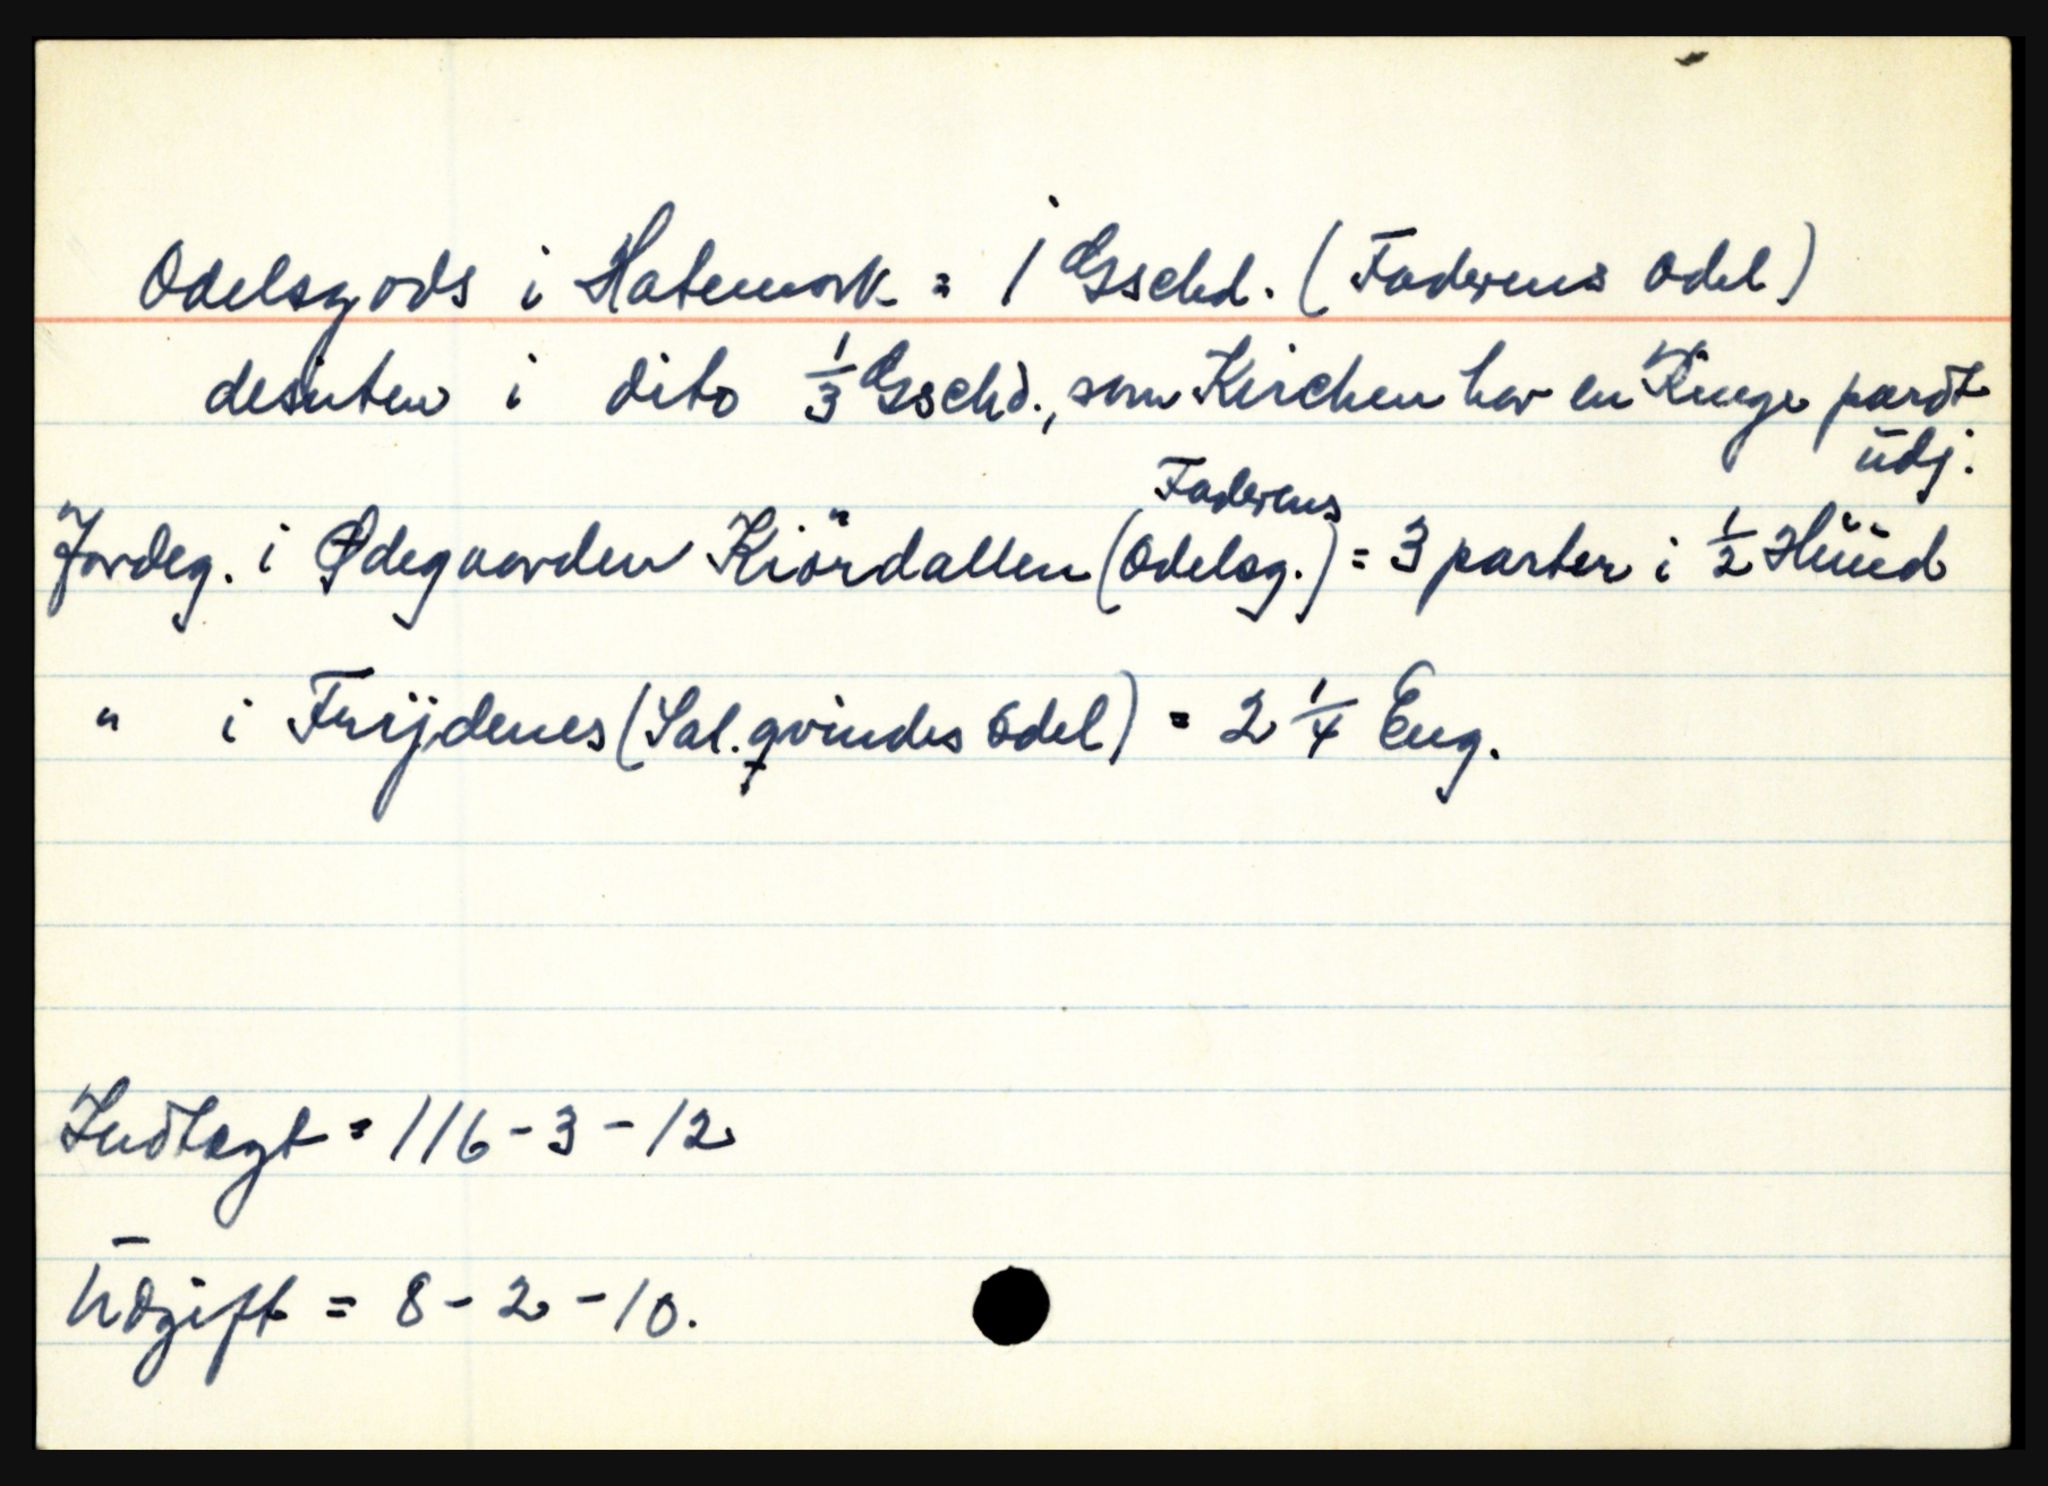 Odelsgods i Hatemork = 1 Gschd. (Faderens odel)
desuten i dito 1/3 Gschd., som Kirchen har en Ringe pardt
udj.
Jordeg. i Ødegaarden Kiördallen (Faderens Odelsg.) = 3 parter i 1/2 Hüüd
" i Frijdenes (Sal. qvindes odel) = 2 1/4 Eng.
Indtegt = 116 - 3 - 12
Udgift = 8 - 2 - 10.